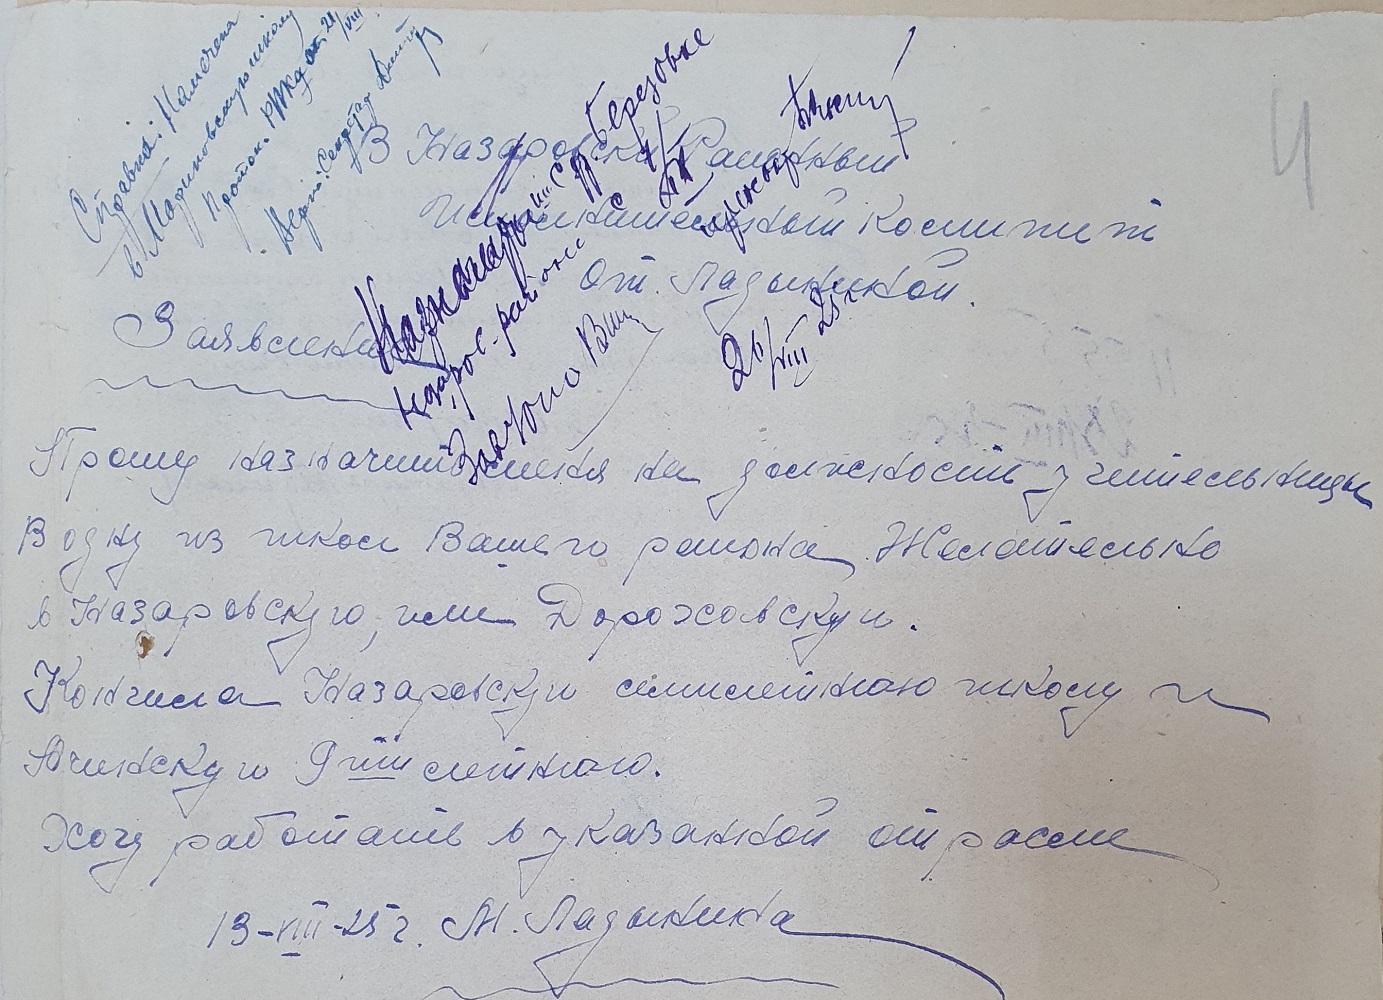 Справка: Намечена
в Мариновскую школу
Проток. РИКа от 21/VIII
Верно: Секретар
В Назаровский Районный
Исполнительный Комитет
От. Ладыниной.
Заявление
Назначить
Березовке
Назаров. района
26/VIII 25 г
4
Прошу назначить меня на должность учительницы
В одну из школ Вашего района. Желательно
в Назаровскую, или Дороховскую.
Кончила Назаровскую семилетнюю школу и
Ачинскую 9тилетнюю.
Хочу работать в указанной отрасле
13-VIII-25 г. М. Ладынина